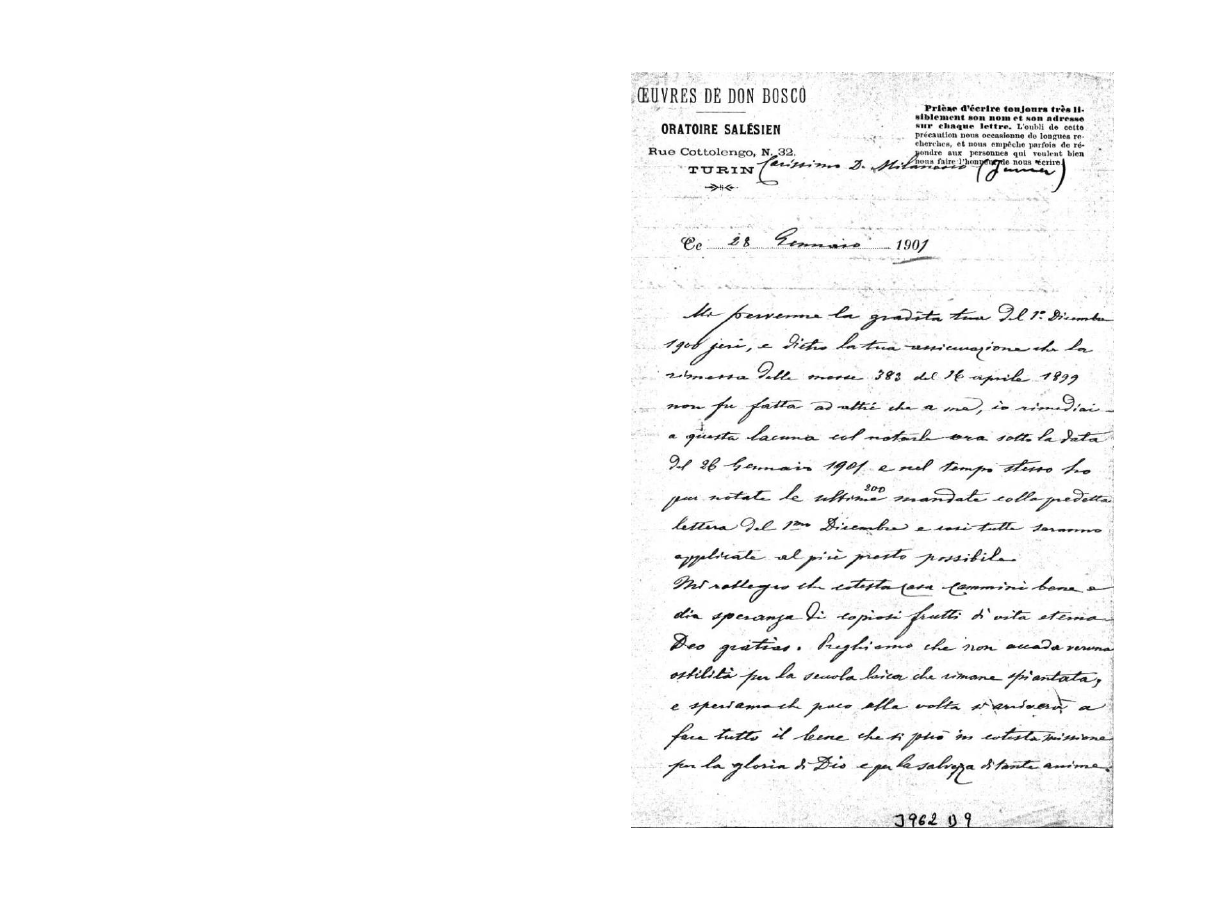 ŒUVRES DE DON BOSCO
ORATOIRE SALÉSIEN
Rue Cottolengo, N. 32.
TURIN
Prière d'écrire toujours très li-
siblement son nom et son adresse
sur chaque lettre. L'oubli de cette
précaution nous occasionne de longues re-
cherches, et nous empêche parfois de ré-
pondre aux personnes qui veulent bien
nous faire l'honneur de nous écrire.
Carissimo D. Milanesio (Junin)
Ce 28 Gennaio 1901
Mi pervenne la gradita tua del 1° Dicembre
1900 jeri, e dietro la tua assicurazione che la
rimessa delle messe 383 del 26 aprile 1899
non fu fatta ad altri che a me, io rimediai
a questa lacuna col notarle ora sotto la data
del 26 Gennaio 1901 e nel tempo stesso ho
pur notate le ultime 200 mandate colla predetta
lettera del 1mo Dicembre e così tutte saranno
applicate al più presto possibile.
Mi rallegro che cotesta casa cammini bene e
dia speranza di copiosi frutti di vita eterna
Deo gratias. Preghiamo che non accada veruna
ostilità per la scuola laica che rimane spiantata,
e speriamo che poco alla volta si arriverà a
fare tutto il bene che si può in cotesta missione
per la gloria di Dio e per la salvezza di tante anime.
J962 D 9